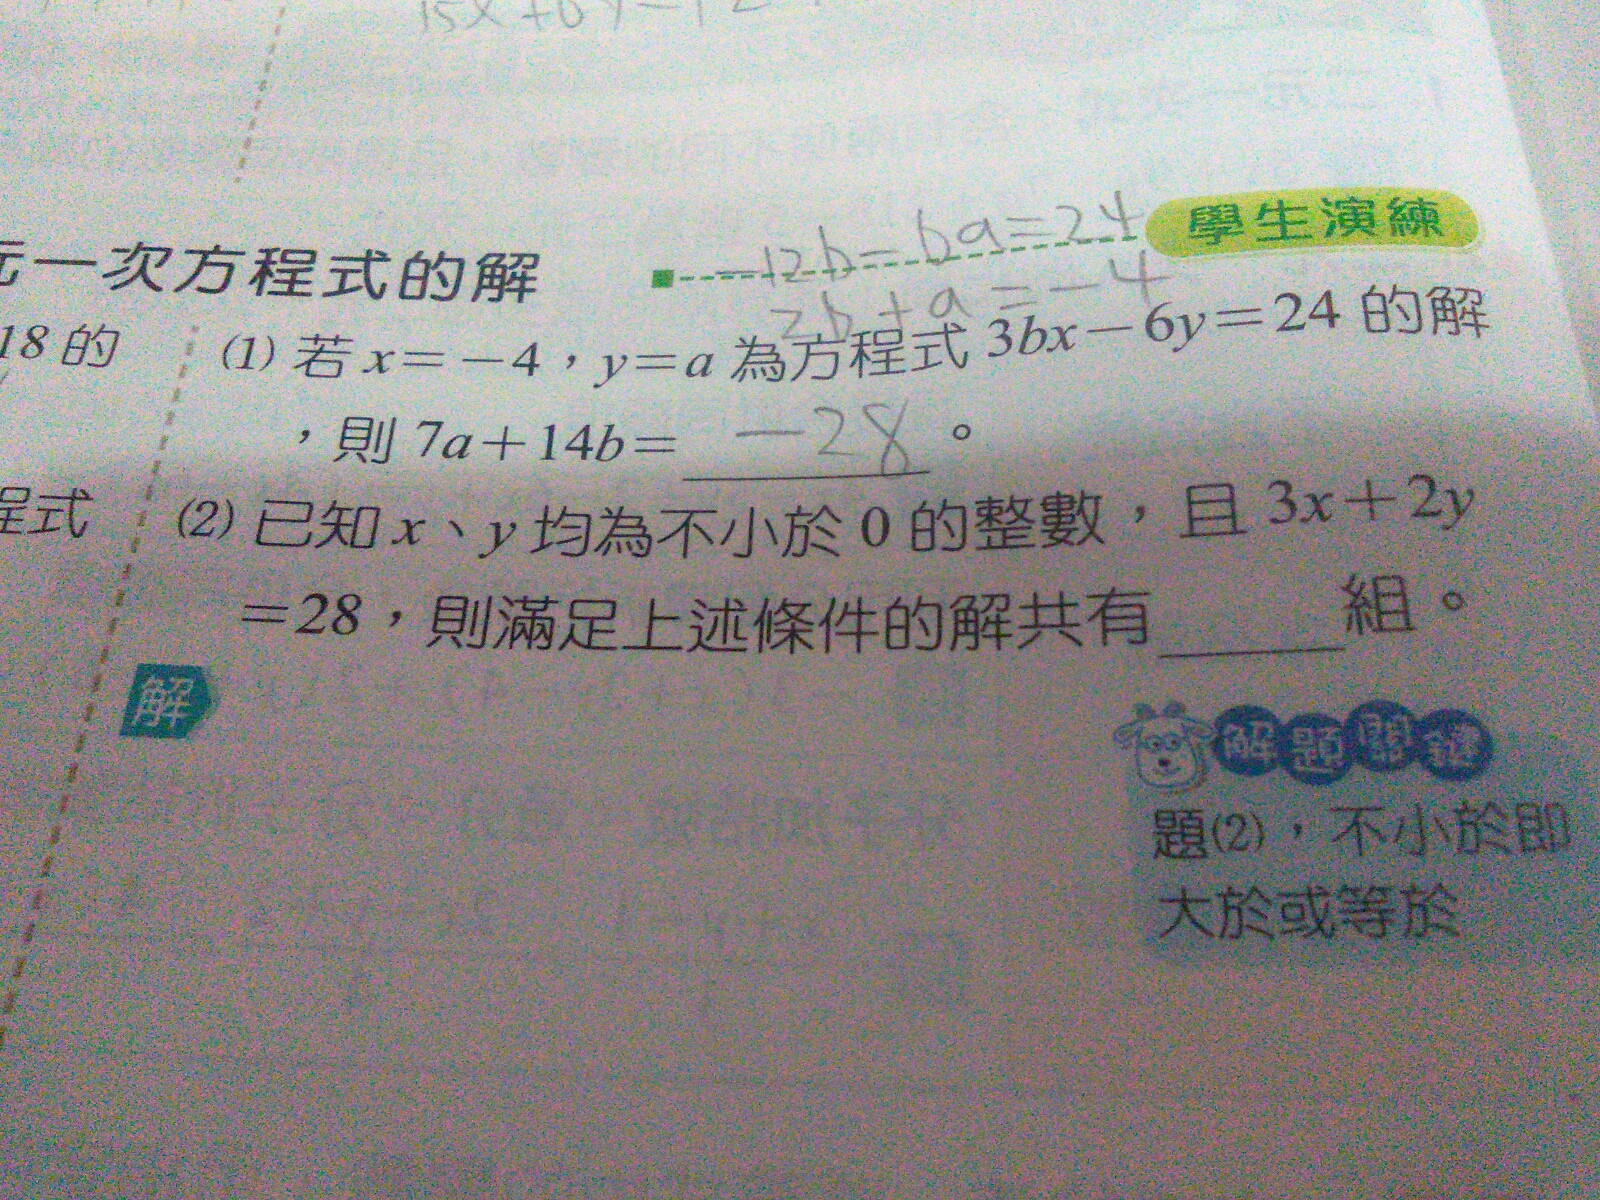 15x+6y=12
學生演練
-12b-6a=24
2b+a=-4
元一次方程式的解
18的
(1) 若x=-4，y=a為方程式3bx-6y=24的解
，則7a+14b= -28 。
程式
(2) 已知x、y均為不小於0的整數，且3x+2y
=28，則滿足上述條件的解共有____組。
解
解題關鍵
題(2)，不小於即
大於或等於